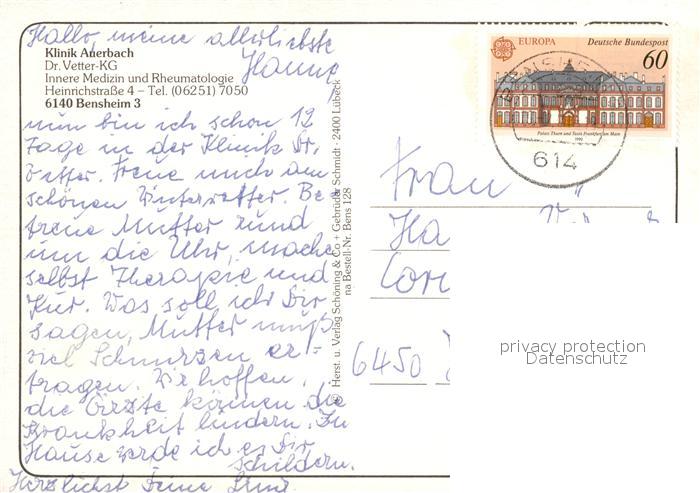 Hallo, meine allerliebste
Hanne
Klinik Auerbach
Dr. Vetter-KG
Innere Medizin und Rheumatologie
Heinrichstraße 4 – Tel. (06251) 7050
6140 Bensheim 3
nun bin ich schon 12
Tage in der Klinik Dr.
Vetter. Freue mich am
schönen Winterwetter. Be
treue Mutter rund
um die Uhr, mache
selbst Therapie und
Kur. Was soll ich Dir
sagen, Mutter muß
viel Schmerzen er-
tragen. Wir hoffen,
die Ärzte können die
Krankheit lindern. Zu
Hause werde ich es Dir
schildern.
Herzlichst Deine
© Herst. u. Verlag Schöning & Co + Gebrüder Schmidt · 2400 Lübeck
na Bestell-Nr. Bens 128
EUROPA Deutsche Bundespost
60
Palais Thurn und Taxis Frankfurt am Main
1990
614
Frau
Ha
6450
privacy protection
Datenschutz